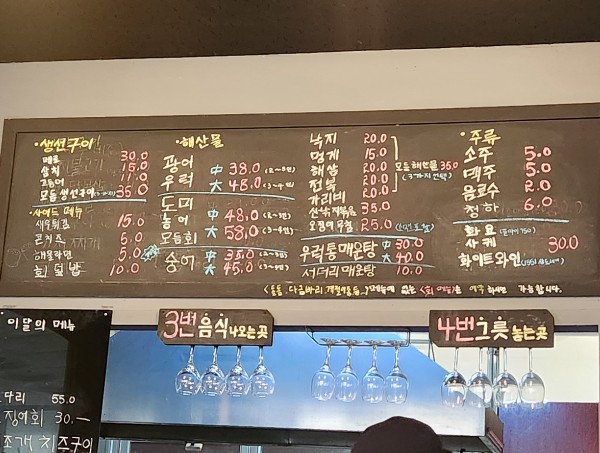 ·생선구이
메로 30.0
삼치 15.0
고등어 11.0
모듬 생선구이 35.0
·사이드 메뉴
새우튀김 15.0
콘치즈 5.0
해물라면 5.0
회 덮밥 10.0
·해산물
광어 中 38.0 (2~3인)
우럭 大 48.0 (3~4인)
도미
농어 中 48.0 (2~3인)
모듬회 大 58.0 (3~4인)
숭어 中 35.0 (2~3인)
大 45.0 (3~4인)
낙지 20.0
멍게 15.0
해삼 20.0
전복 20.0
가리비 20.0
모듬 해산물 35.0
(3가지 선택)
산낙지볶음 35.0
오징어무침 25.0
우럭통매운탕 中 30.0
大 40.0
서더리매운탕 10.0
·주류
소주 5.0
맥주 5.0
음료수 2.0
청하 6.0
화요
사케 30.0
화이트와인
메뉴에 없는 <회 메뉴>는 예약 하시면 가능 합니다.
3번 음식 나오는곳
4번 그릇 놓는곳
이달의 메뉴
다리 55.0
징어회 30.-
조개 치즈구이